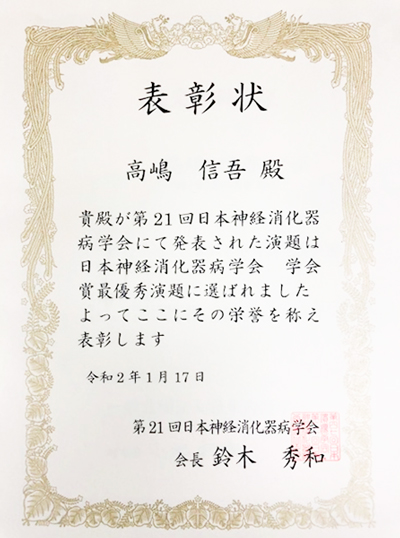 表彰状
高嶋　信吾 殿
貴殿が第21回日本神経消化器
病学会にて発表された演題は
日本神経消化器病学会　学会
賞最優秀演題に選ばれました
よってここにその栄誉を称え
表彰します
令和2年1月17日
第21回日本神経消化器病学会
会長 鈴木　秀和